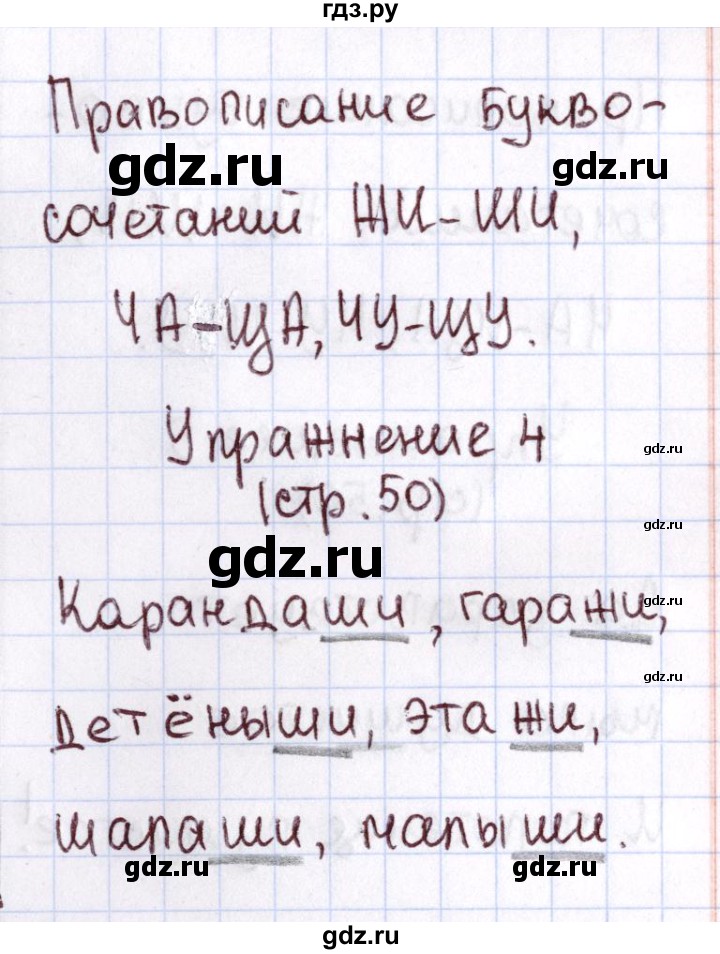 гдз.ру
Правописание букво-
gdz.ru
gdz.ru
сочетаний ЖИ-ШИ,
ЧА-ЩА, ЧУ-ЩУ.
Упражнение 4
gdz.ru
(стр. 50)
gdz.ru
gdz.ru
Карандаши, гаражи,
gdz.ru
gdz.ru
детёныши, этажи,
шалаши, малыши.
gdz.ru
gdz.ru
gdz.ru